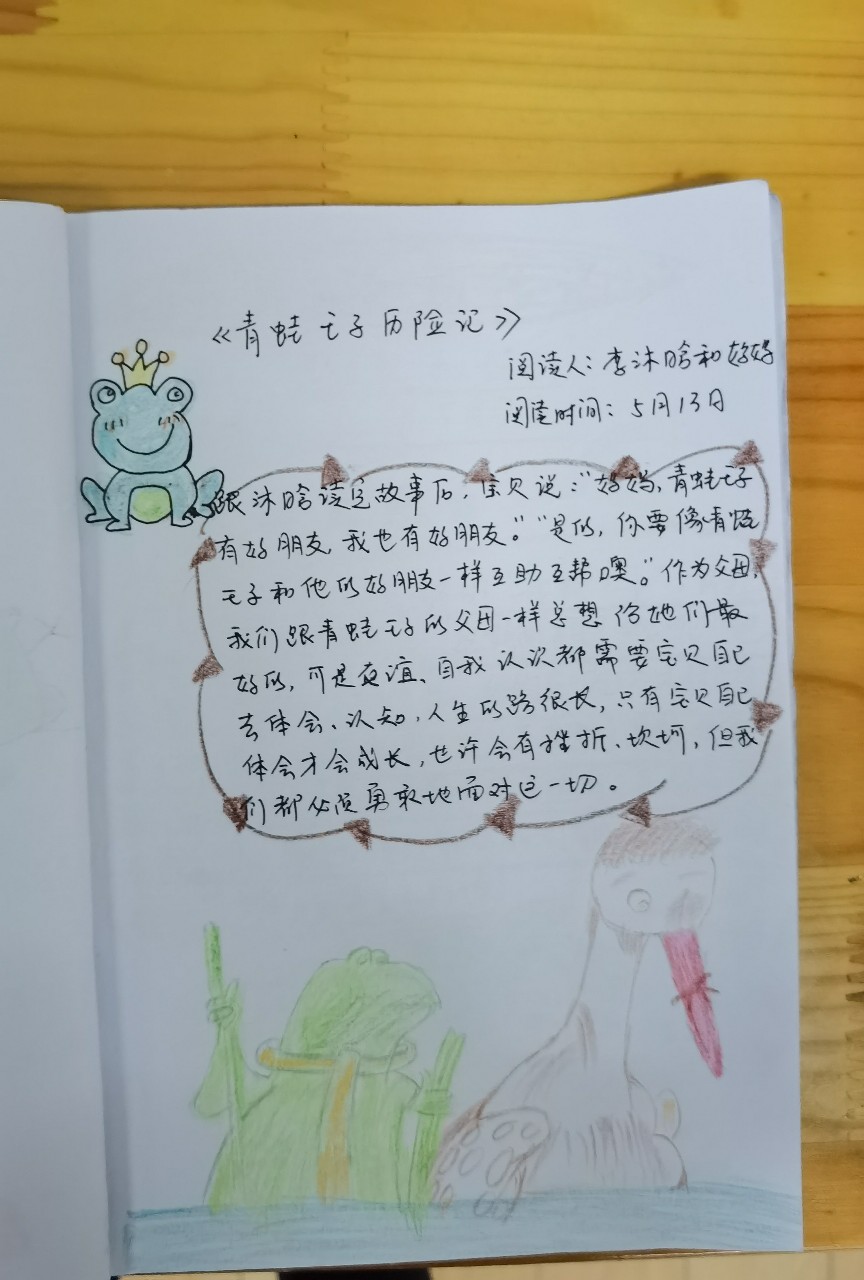 《青蛙王子历险记》
阅读人：李沐晗和妈妈
阅读时间：5月13日
跟沐晗读完故事后，宝贝说：“妈妈，青蛙王子
有好朋友，我也有好朋友。”“是的，你要像青蛙
王子和他的好朋友一样互助互帮噢。”作为父母，
我们跟青蛙王子的父母一样总想给她们最
好的，可是友谊、自我认识都需要宝贝自己
去体会、认知，人生的路很长，只有宝贝自己
体会才会成长，也许会有挫折、坎坷，但我
们都必须勇敢地面对这一切。